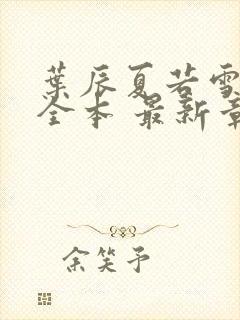 葉辰夏若雪
全本 最新章
余笑予